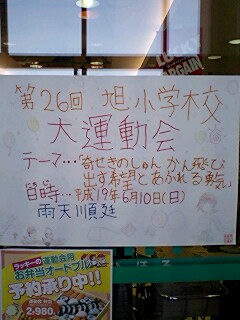 LUCKY
BARGAIN!
第26回 旭小学校
大運動会
テーマ…寄せきのしゅんかん飛び
出す希望とあふれる
日時…平成19年6月10日(日)
雨天順延
ラッキーの運動会用
お弁当オードブル
予約承り中!!
2,980